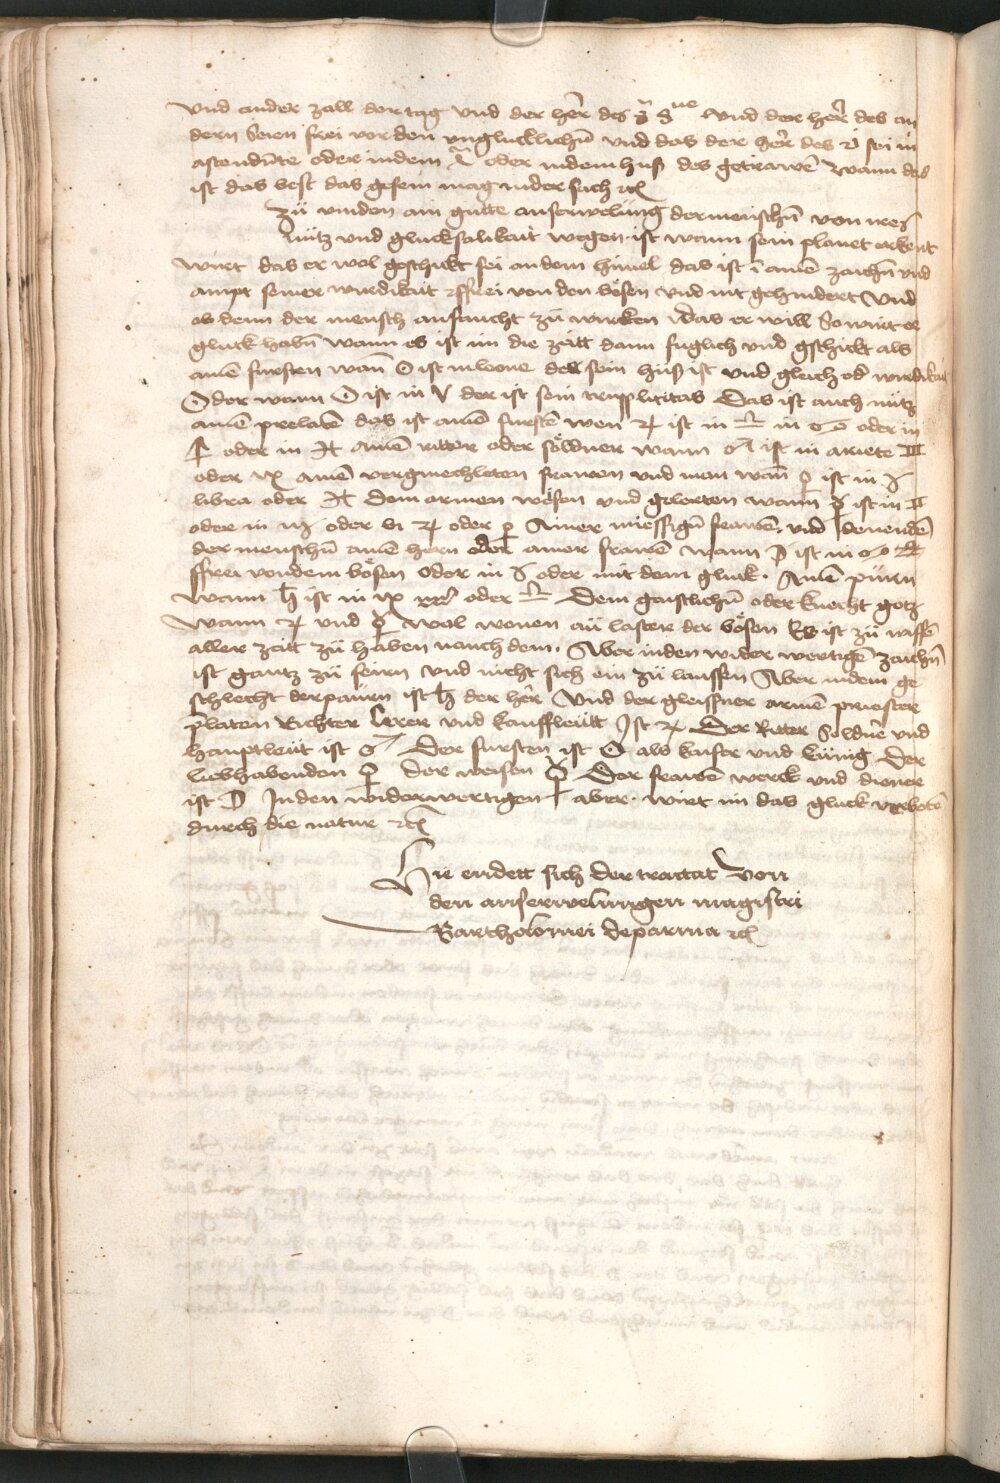 vnd ander zall der tag vnd der her des und der her des an
dern Seien frei vor den vngluklichn̄ vnd das der her des 2 sei in
ascendēte oder in dem oder in dem hus des getrawē Wann das
ist das best das gesein mag in der sach ⁊c̄
Zü vinden ain gutte auserwelung der menschn̄ von ires
nütz vnd gluksalikait wegen ist wann sein planet erkent
wirt das er wol geschikt sei an dem himel das ist ī ainē zaichn̄ vnd
ampt seiner wirdikait ⁊ ffrei von den bösen vnd nit gehindert Vnd
ob denn der mensch anfaucht zü wirken das er will So wirt er
gluk habn̄ wann es ist im die zeitt dann fuglich vnd gschikt als
ainē fursten wan̄ ☉ ist in leone das sein hus ist vnd gleich od wirdikait
Oder wann ☉ ist in ♈ der ist sein triplicitas Das ist auch nütz
ainē prelatē das ist ainē furstē wen ♃ ist in ♎ in ♋ oder in
♐ oder in ♓ Ainē ritter oder söldner wann ♂ ist in ariete
oder ♑ Ainē vergmechleten frawen vnd man wan̄ ♀ ist in ♉
libra oder ♓ Dem armen wesen vnd gelerten wann ☿ ist in ♊
oder in ♍ oder bi ♃ oder ♀ Ainer miessign̄ frawē vnd dienendē
der menschn̄ ainē hern oder ainer frawē wann ☽ ist in ♋
ffrei von dem bösen oder in ♉ oder mit dem gluk. Ainē pürn
wann ♄ ist in ♑ ♒ oder ♎ Dem gaistlichn̄ oder knecht gotz
wann ♃ vnd ♀ wol wonen an laster der bösen Es ist zü wissē
aller zeitt zü haben nauch dem. Aber in den wider wertigē zaichn̄
ist gantz zü feirn vnd nicht sich ein zü laussen Aber in dem ge
schlecht der paürn ist ♄ der her Vnd der gleissner armē priester
platen Richter Lerer vnd kauffleütt Ist ♃ Der Ritter Soldn̄e vnd
hauptleüt ist ♂ Der fursten ist ☉ als kaiser vnd künig Der
liebhabenden ♀ der weisen ☿ Der frawē werck vnd diener
ist ☽ In den widerwertigen aber wirt im das gluck verbotē
durch die natur ⁊c̄
Hie endett sich der tractat von
den auserwelungen magistri
Bartholomei de parma ⁊c̄